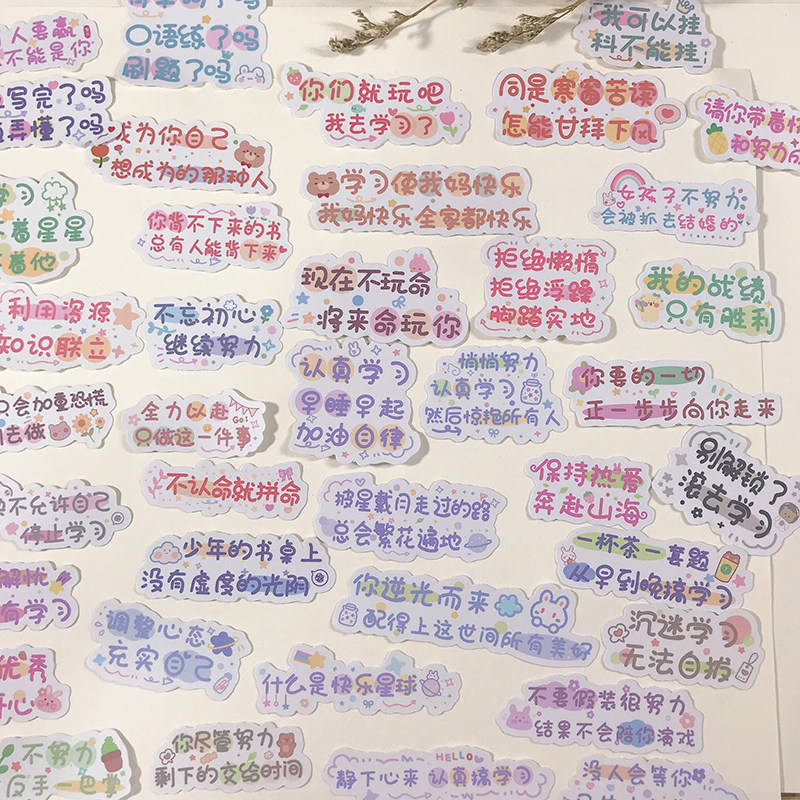 人要赢
不能是你
口语练了吗
刷题了吗
我可以挂
科不能挂
写完了吗
弄懂了吗
成为你自己
想成为的那种人
你们就玩吧
我去学习了
同是寒窗苦读
怎能甘拜下风
请你带着
和努力
学习
着星星
着他
你背不下来的书
总有人能背下来
学习使我妈快乐
我妈快乐全家都快乐
女孩子不努力
会被抓去结婚的
利用资源
知识联立
不忘初心
继续努力
现在不玩命
将来命玩你
拒绝懒惰
拒绝浮躁
脚踏实地
我的战绩
只有胜利
只会加重恐慌
去做
全力以赴
Go!
只做这一件事
认真学习
早睡早起
加油自律
悄悄努力
认真学习
然后惊艳所有人
你要的一切
正一步步向你走来
不允许自己
停止学习
不认命就拼命
披星戴月走过的路
总会繁花遍地
保持热爱
奔赴山海
别解锁了
滚去学习
解忧
有学习
少年的书桌上
没有虚度的光阴
你逆光而来
配得上这世间所有美好
一杯茶一套题
从早到晚搞学习
优秀
开心
调整心态
充实自己
什么是快乐星球
沉迷学习
无法自拔
不努力
反手一巴掌
你尽管努力
剩下的交给时间
HELLO
静下心来 认真搞学习
不要假装很努力
结果不会陪你演戏
没人会等你